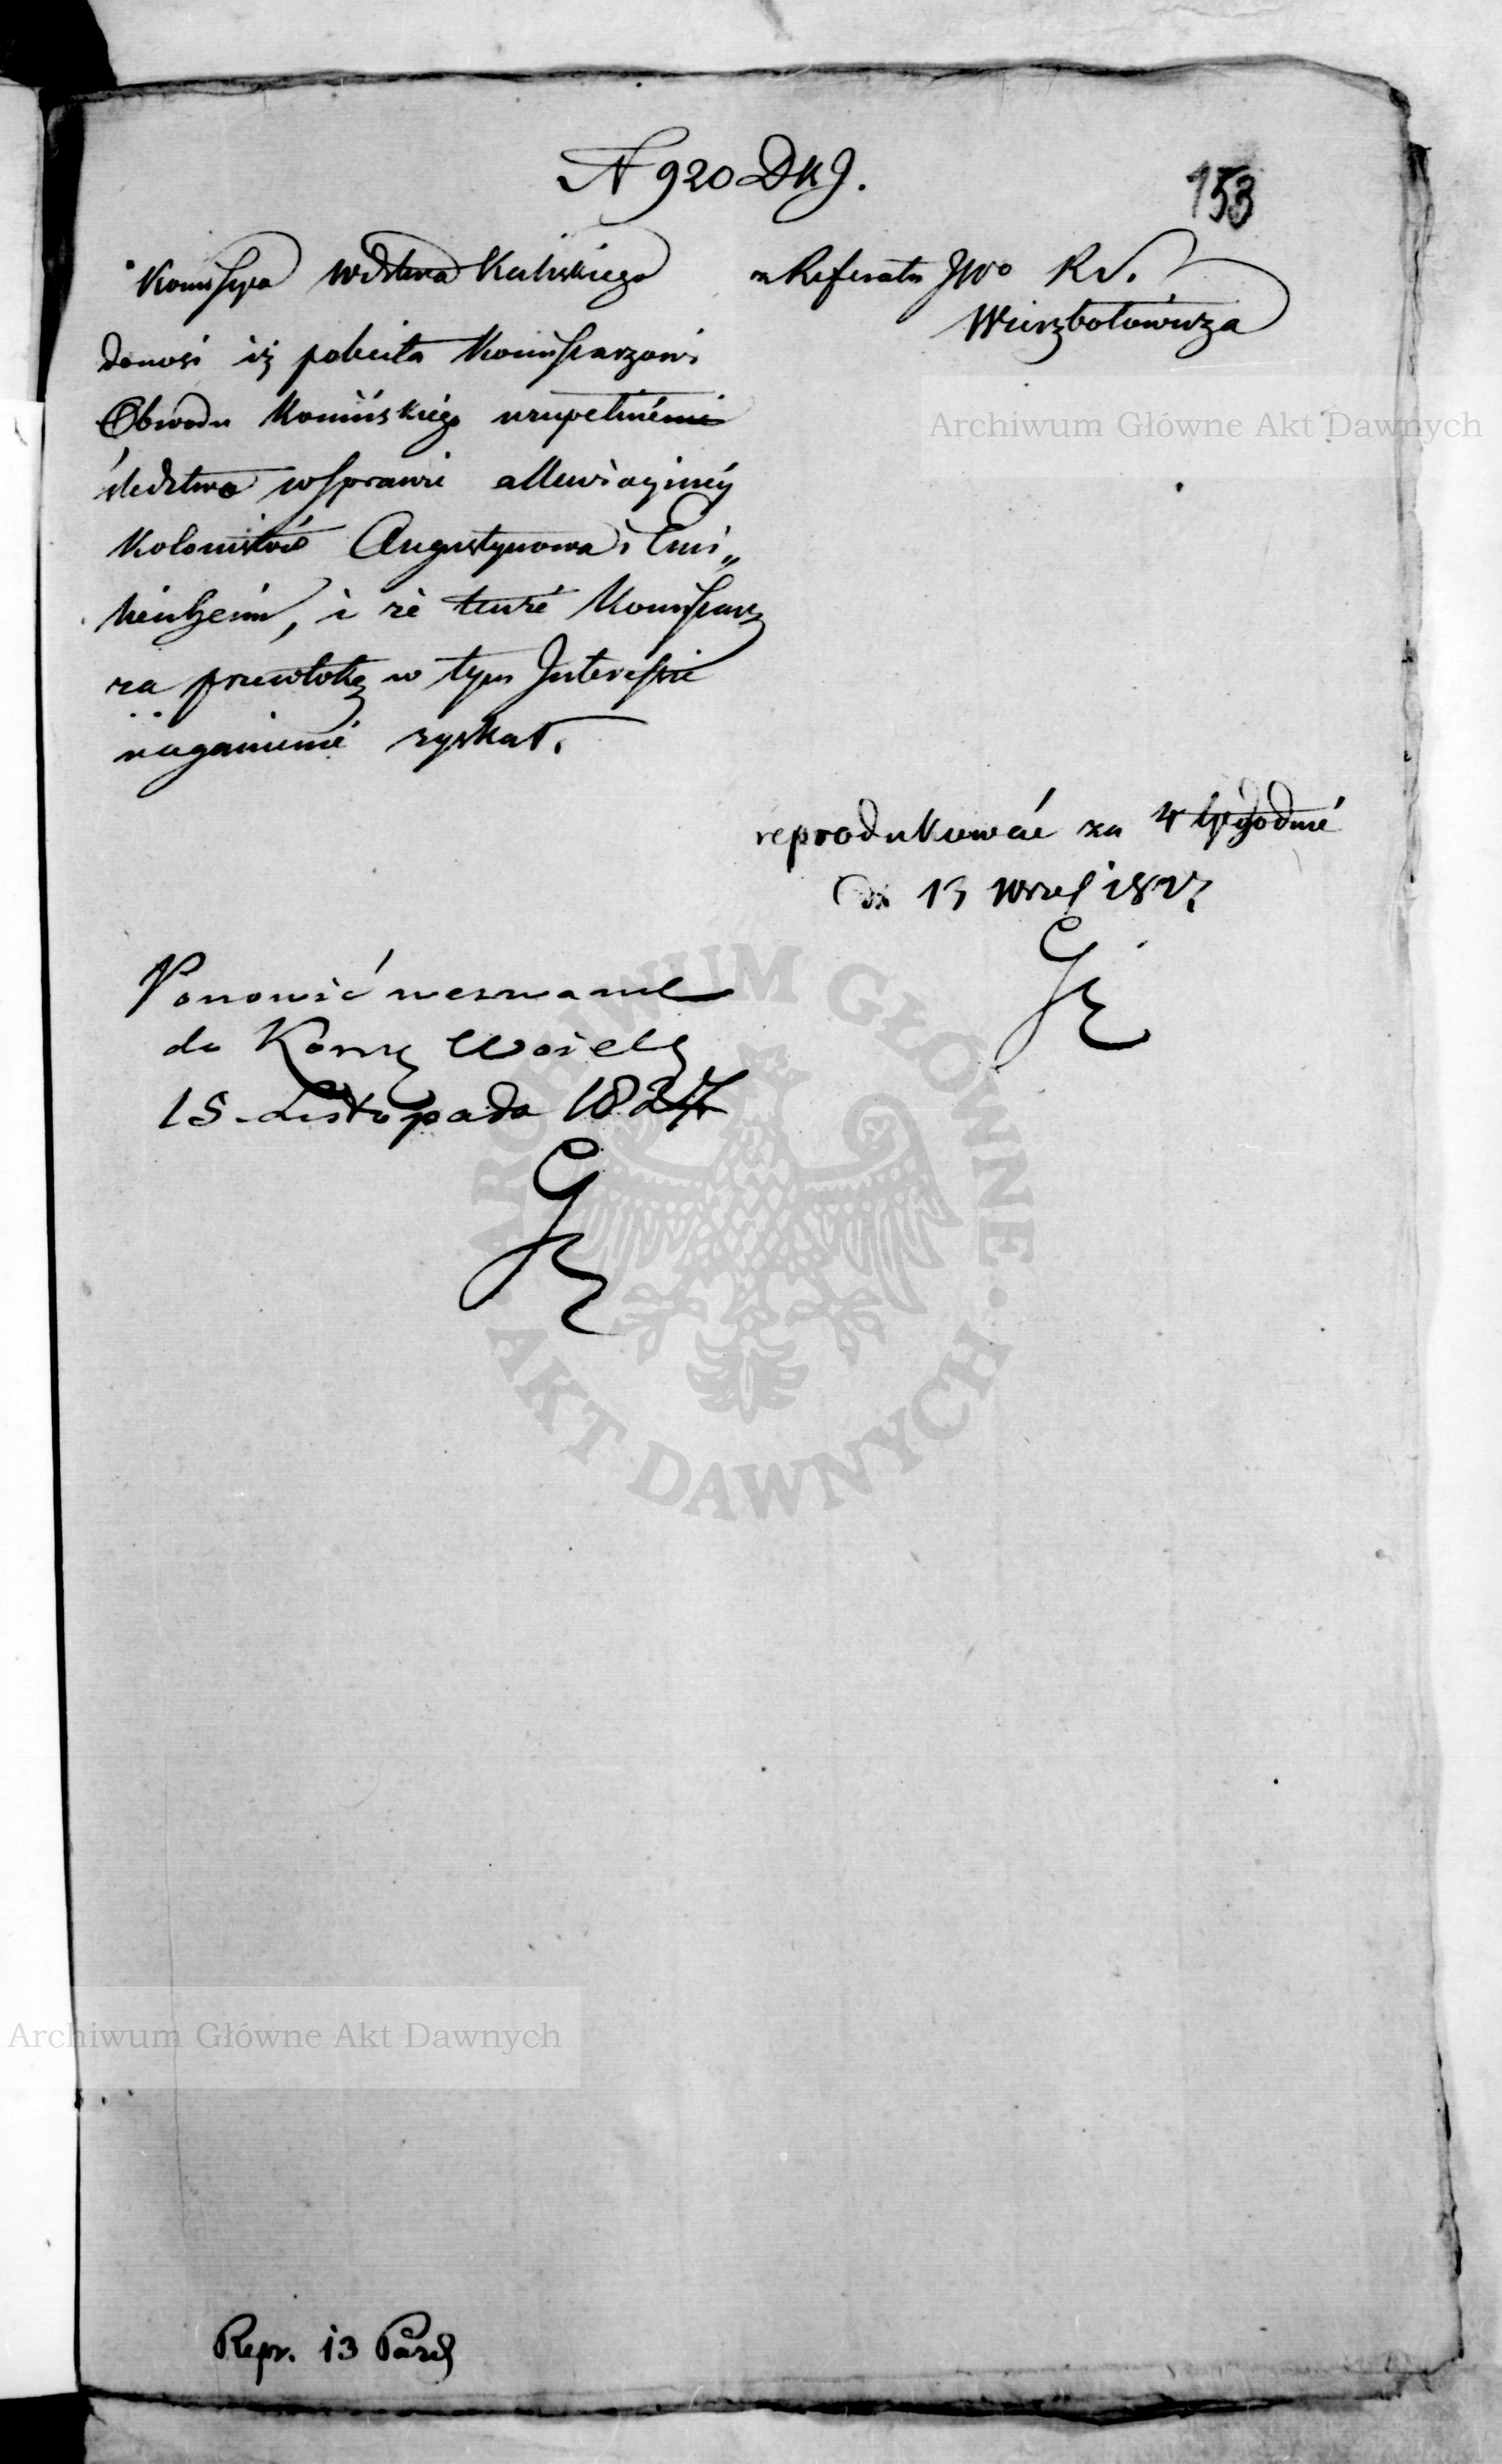 N 920 DKJ.
153
Kommissya Wdztwa Kaliskiego
donosi iż poleciła Kommissarzowi
Obwodu Konińskiego uzupełnienie
śledztwa w sprawie allewiacyjnéy
Kolonistów Augustynowa i
i że tenże Kommissarz
za przewłokę w tym Interessie
naganienie zyskał.
z Referatu JWo RS.
Wierzbołowicza
reprodukować za 4 tygodnie
13 Wrześ 1827
Ponowić wezwanie
do Kommy Wojely
15 Listopada 1827
Repr. 13 Paźd
Archiwum Główne Akt Dawnych
ARCHIWUM GŁÓWNE AKT DAWNYCH
Archiwum Główne Akt Dawnych